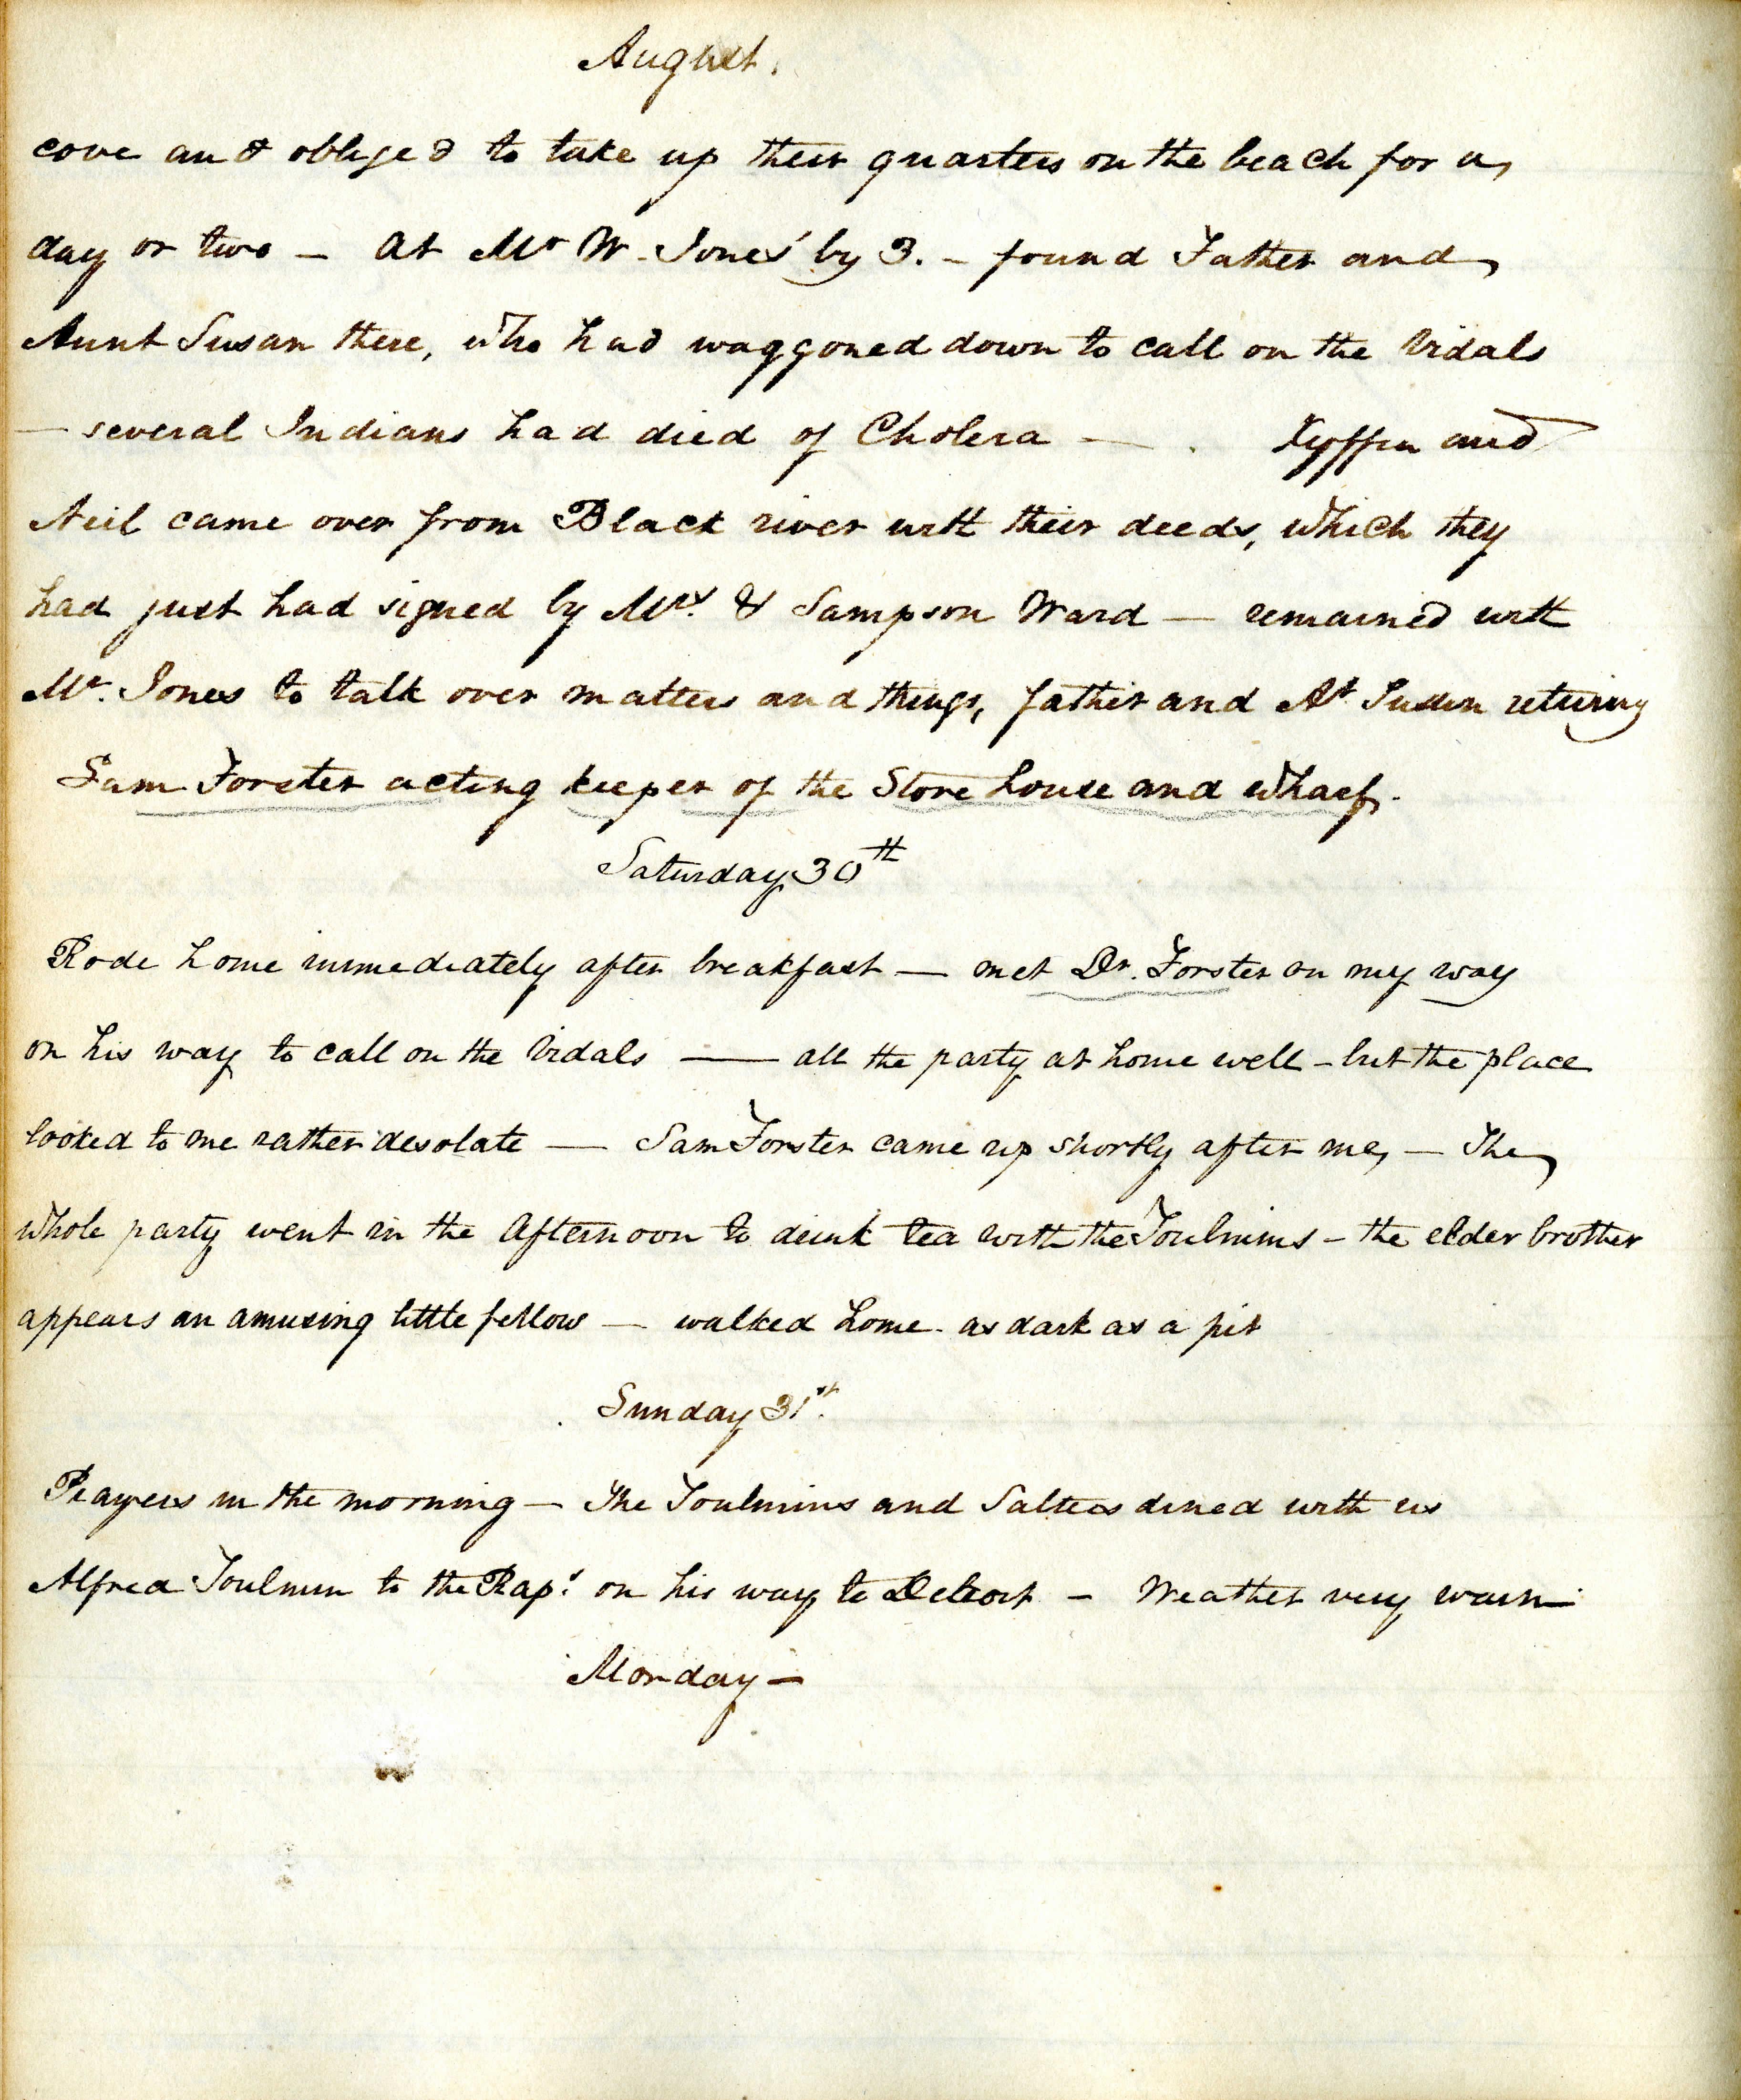 August.
cove and obliged to take up their quarters on the beach for a
day or two – At Mr W. Jones' by 3. – found Father and
Aunt Susan there, who had waggoned down to call on the Vidals
— several Indians had died of Cholera — and
Neil came over from Black river with their deeds, which they
had just had signed by Mrs. & Sampson Ward — remained with
Mr. Jones to talk over matters and things, father and At Susan returning
Sam Forster acting keeper of the Store house and Wharf.
Saturday 30th
Rode home immediately after breakfast — met Dr. Forster on my way
on his way to call on the Vidals — all the party at home well – but the place
looked to me rather desolate — Sam Forster came up shortly after me, — The
whole party went in the Afternoon to drink tea with the Toulmins – the elder brother
appears an amusing little fellow — walked home. as dark as a pit
Sunday 31st.
Prayers in the morning — The Toulmins and Salters dined with us
Alfred Toulmin to the Rap.s on his way to Detroit – Weather very warm
Monday –